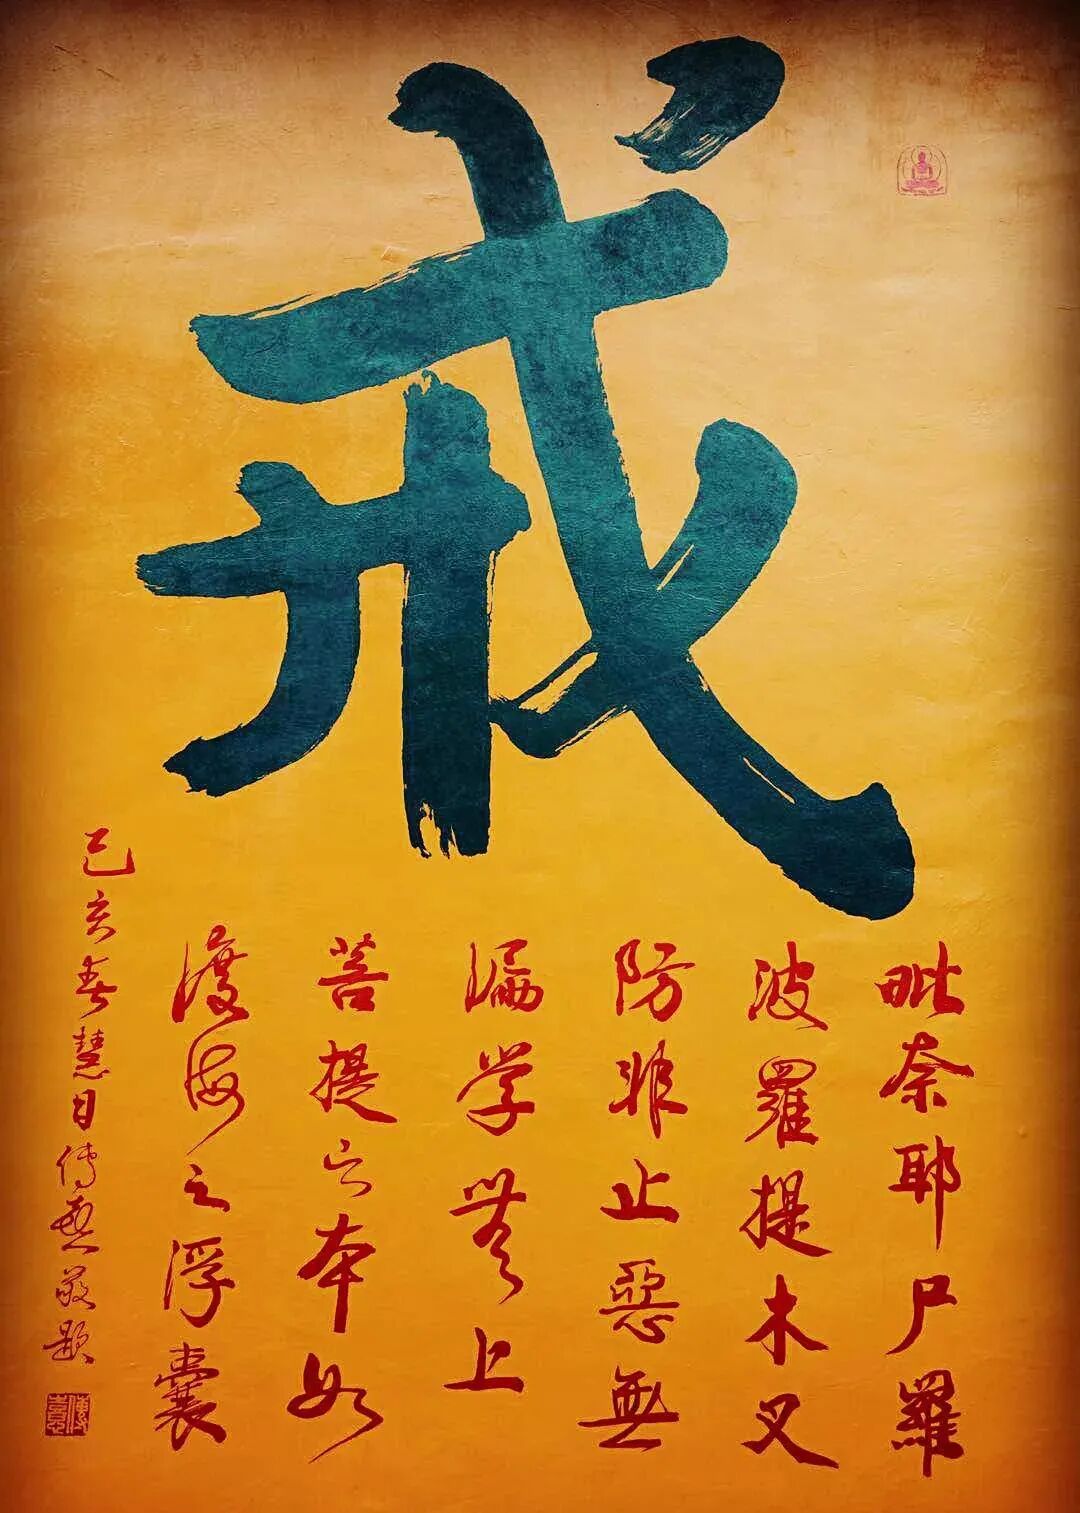 戒
毗奈耶尸羅
波羅提木叉
防非止惡無
漏學無上
菩提之本如
渡海之浮囊
己亥春慧日傳憙敬題